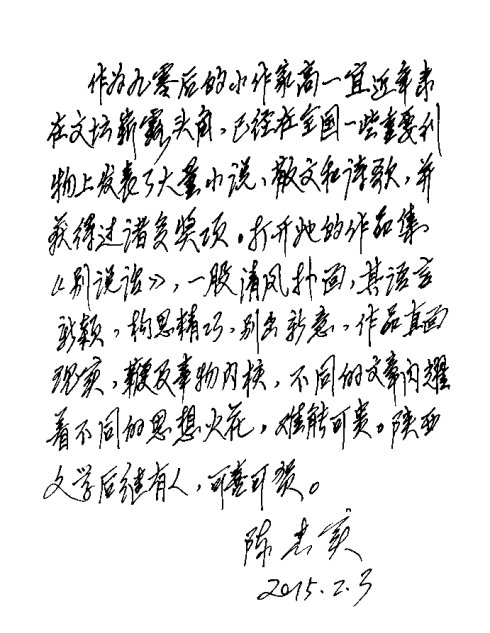 作为九零后的小作家高一宜近年来
在文坛崭露头角，已经在全国一些重要刊
物上发表了大量小说、散文和诗歌，并
获得过诸多奖项。打开她的作品集
《别说话》，一股清风扑面，其语言
新颖，构思精巧，别出新意，作品直面
现实，鞭及事物内核，不同的文章闪耀
着不同的思想火花，难能可贵。陕西
文学后继有人，可喜可贺。
陈忠实
2015.2.3